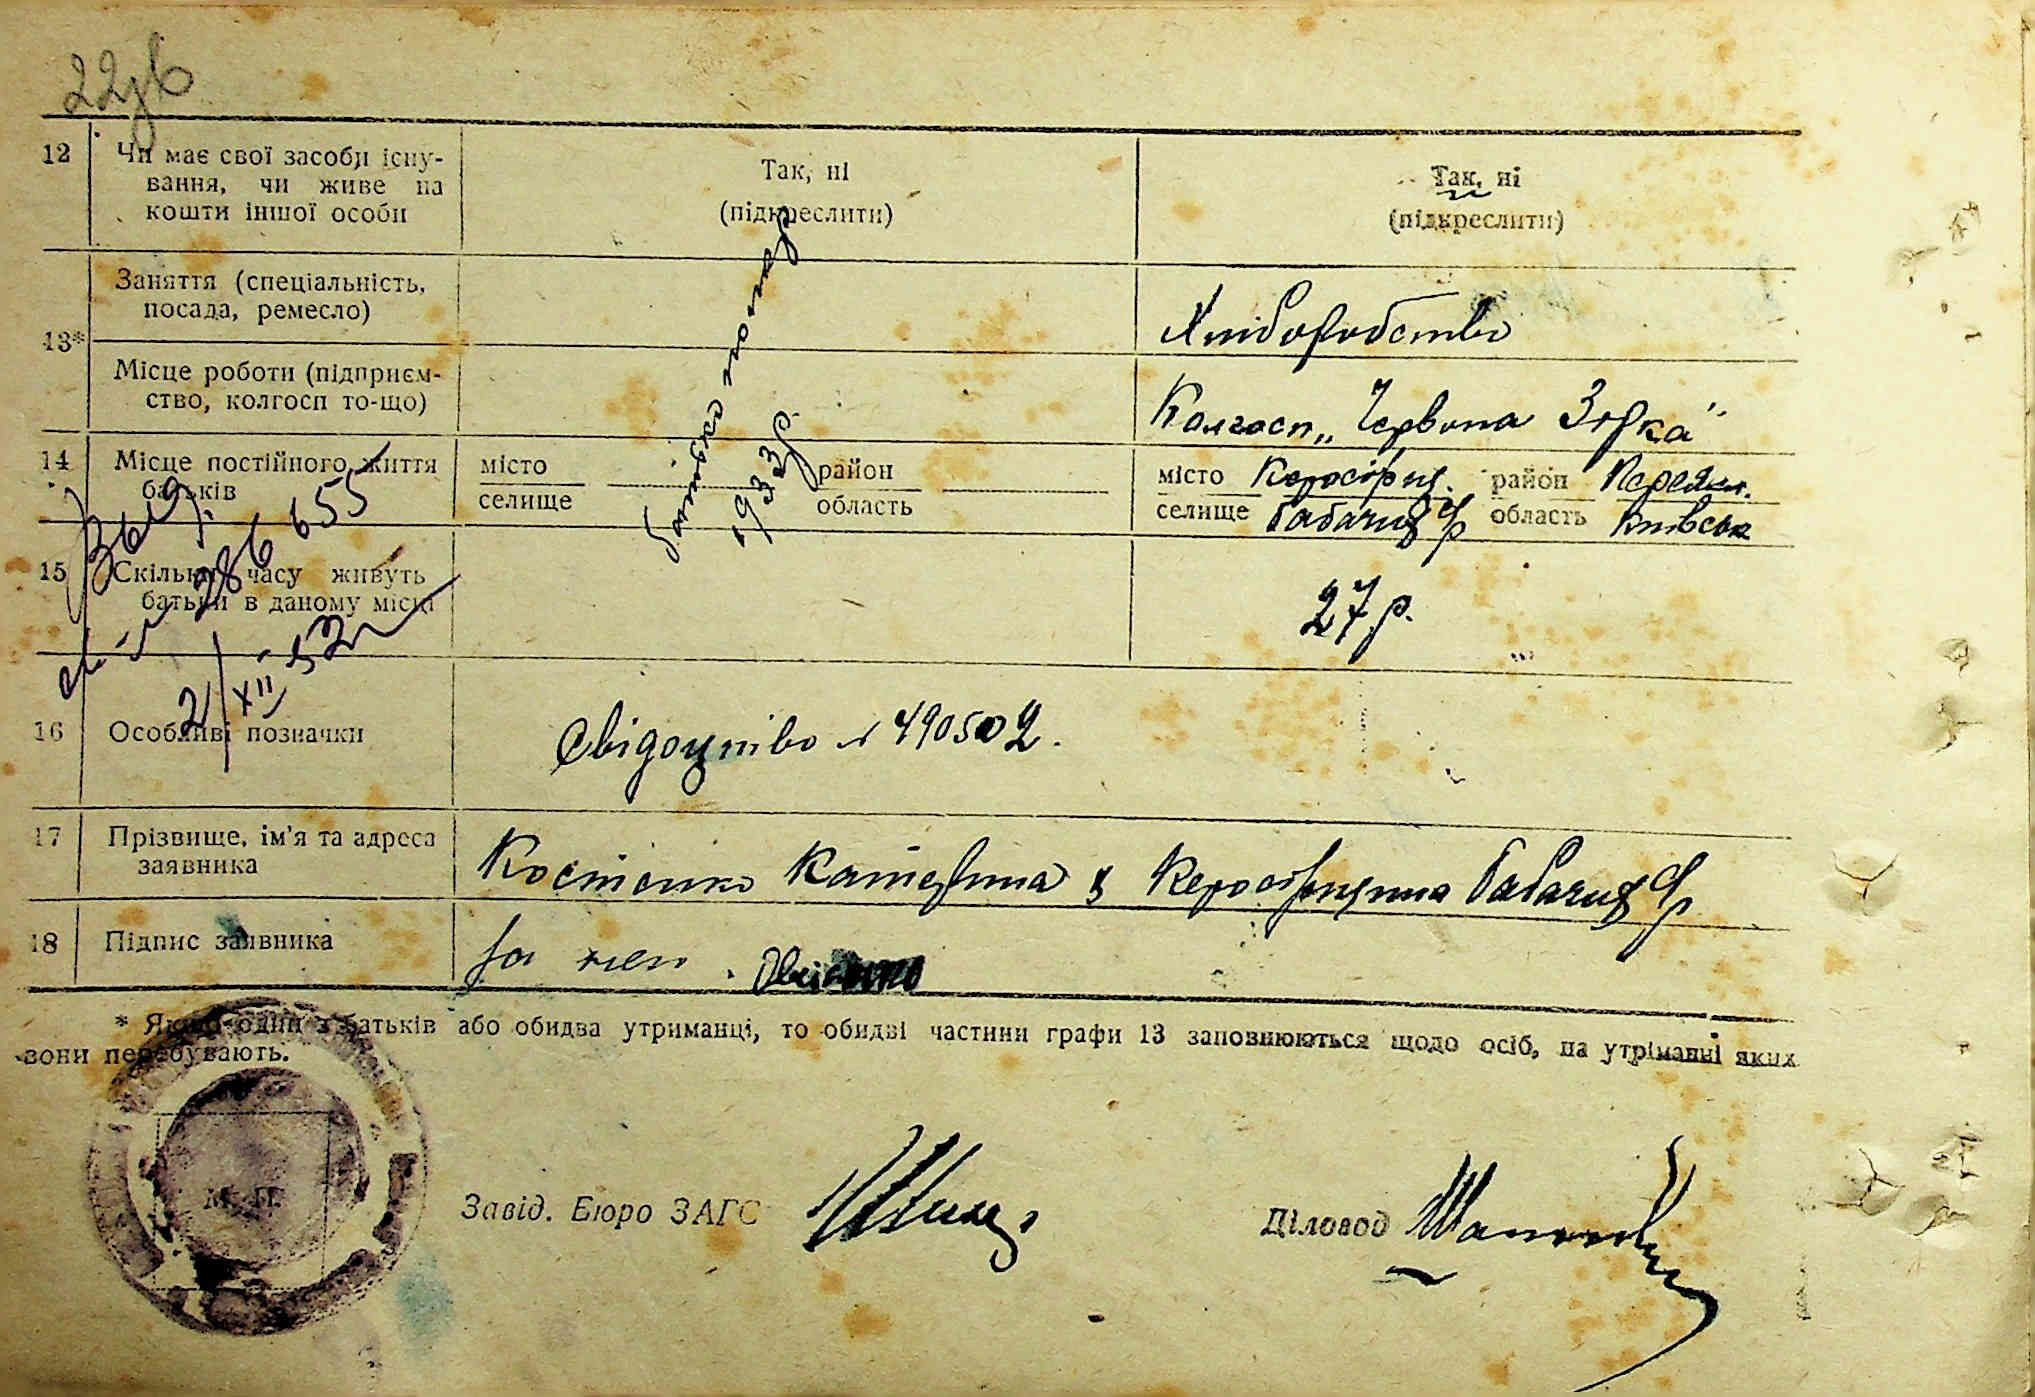 22зв
12 Чи має свої засоби існу-
вання, чи живе на
кошти іншої особи
Так, ні
(підкреслити)
Так, ні
(підкреслити)
13*
Заняття (спеціальність,
посада, ремесло)
Хліборобство
Місце роботи (підприєм-
ство, колгосп то-що)
Колгосп „Червона Зорка"
14 Місце постійного життя
батьків
місто
селище
район
область
місто
район Переясл.
селище
область Київськ
батько помер
1933 р.
15 Скільки часу живуть
батьки в даному місці
27 р.
Выд.
св-л 286655
2/XII-52
16 Особливі позначки
Свідоцтво № 490502.
17 Прізвище, ім'я та адреса
заявника
Костенко Катерина
18 Підпис заявника
за неп. Овсієнко
* Якщо один з батьків або обидва утриманці, то обидві частини графи 13 заповнюються щодо осіб, на утриманні яких
вони перебувають.
М. П.
Завід. Бюро ЗАГС
Діловод